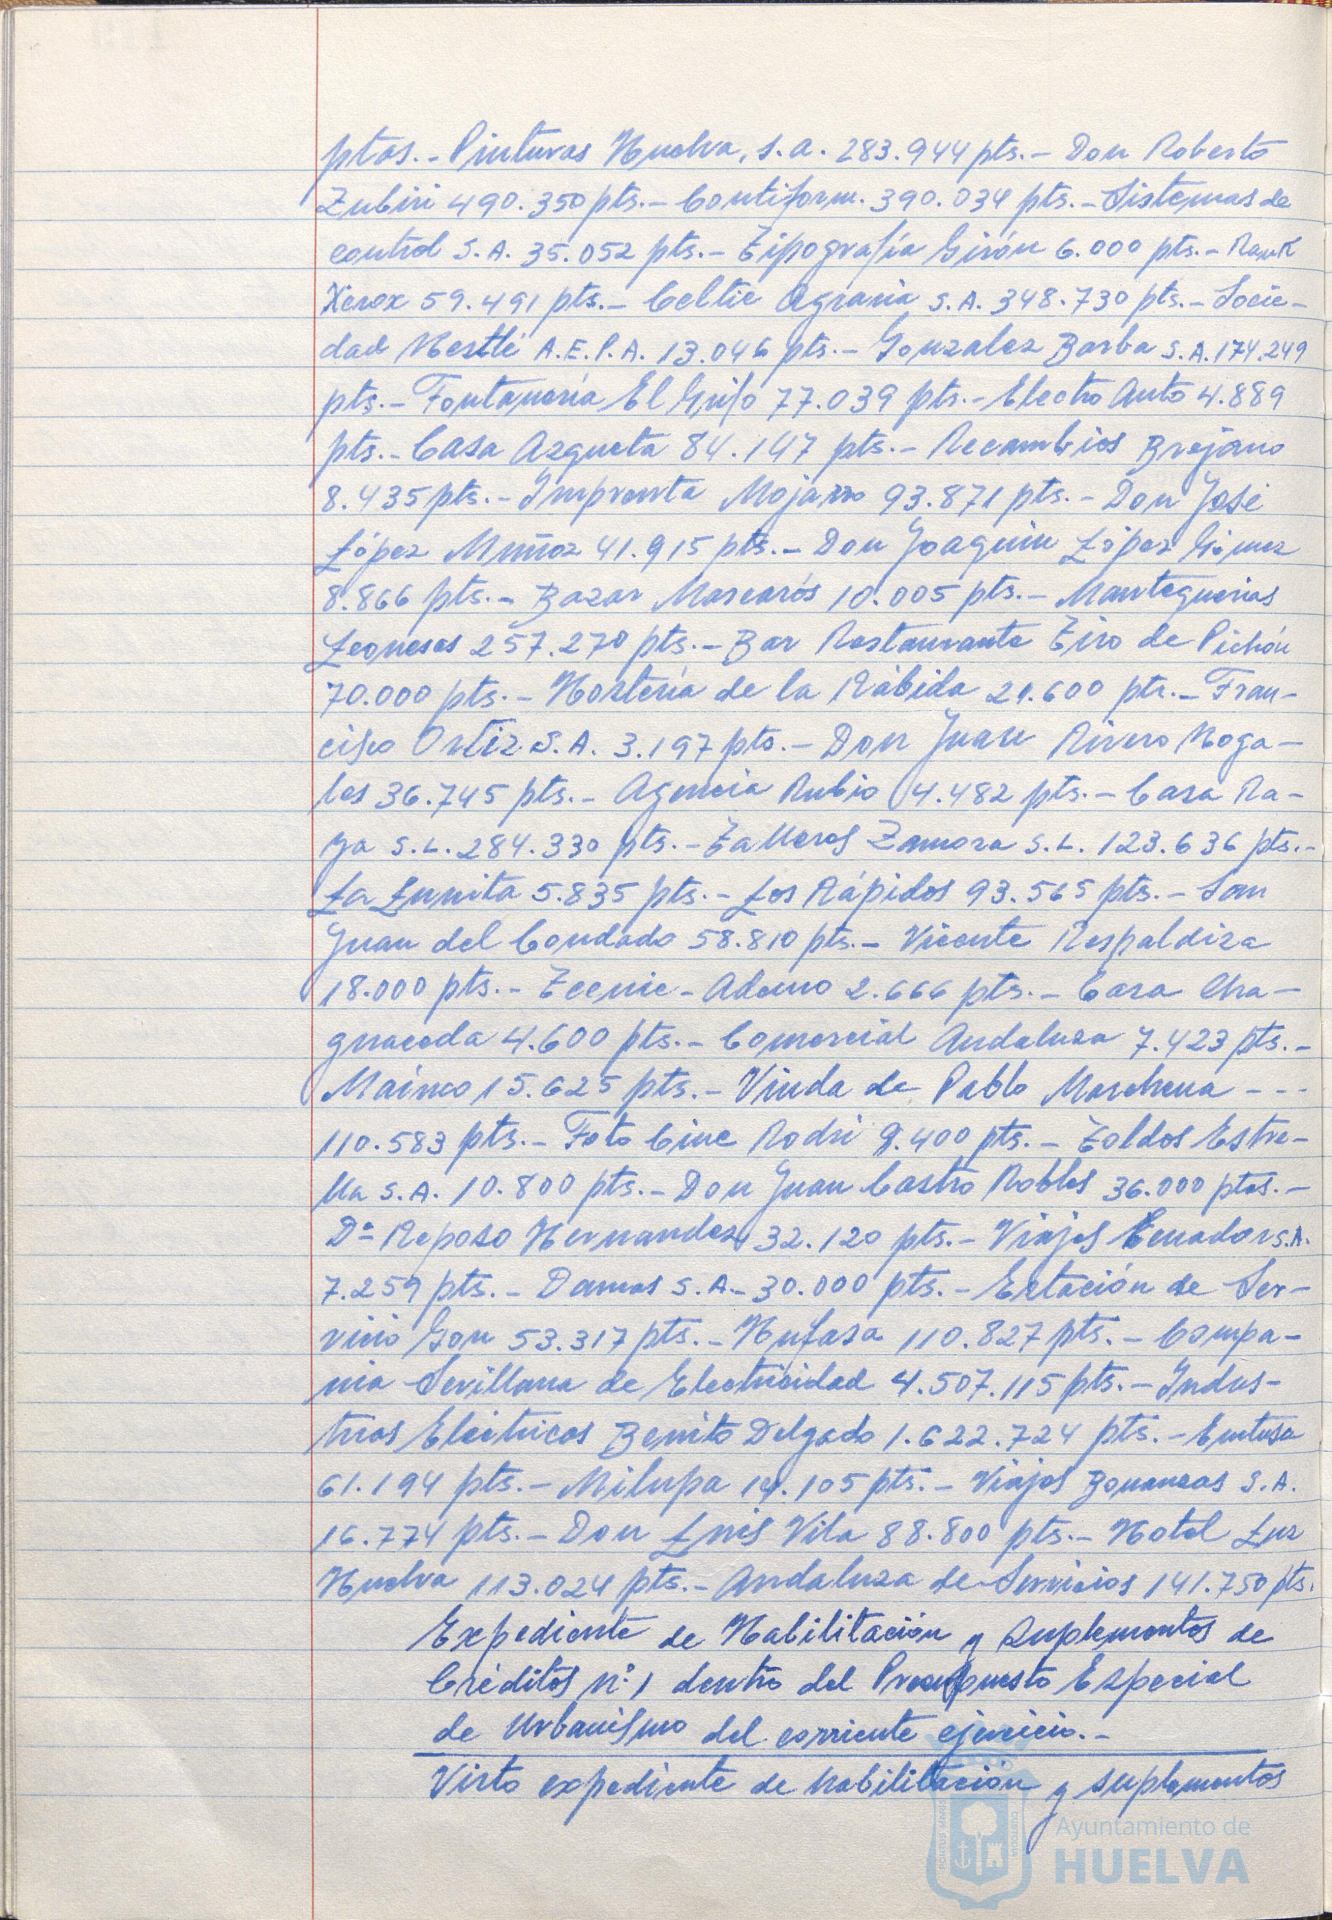 ptas.- Pinturas Huelva, S.A. 283.944 pts.- Don Roberto
Zubiri 490.350 pts.- Contiform. 390.034 pts.- Sistemas de
control S.A. 35.052 pts.- Tipografía Girón 6.000 pts.- Rank
Xerox 59.491 pts.- Celtic Agraria S.A. 348.730 pts.- Socie-
dad Nestlé A.E.P.A. 13.046 pts.- Gonzalez Barba S.A. 174.249
pts.- Fontanería El Grifo 77.039 pts.- Electro Auto 4.889
pts.- Casa Azqueta 84.147 pts.- Recambios Brejano
8.435 pts.- Imprenta Mojarro 93.871 pts.- Don José
López Muñoz 41.915 pts.- Don Joaquin López Gómez
8.866 pts.- Bazar Mascarós 10.005 pts.- Mantequerias
Leonesas 257.270 pts.- Bar Restaurante Tiro de Pichón
70.000 pts.- Hostería de la Rábida 21.600 pts.- Fran-
cisco Ortiz S.A. 3.197 pts.- Don Juan Rivero Noga-
les 36.745 pts.- Agencia Rubio 4.482 pts.- Casa Ra-
ya S.L. 284.330 pts.- Talleres Zamora S.L. 123.636 pts.-
La Lunita 5.835 pts.- Los Rápidos 93.565 pts.- San
Juan del Condado 58.810 pts.- Vicente Respaldiza
18.000 pts.- Tecnic-Ademo 2.666 pts.- Casa Cha-
guaceda 4.600 pts.- Comercial Andaluza 7.423 pts.-
Maimco 15.625 pts.- Viuda de Pablo Marchena - - -
110.583 pts.- Foto Cine Rodri 9.400 pts.- Toldos Estre-
lla S.A. 10.800 pts.- Don Juan Castro Robles 36.000 ptas.-
Dª Reposo Hernandez 32.120 pts.- Viajes Ecuador S.A.
7.259 pts.- Damas S.A.- 30.000 pts.- Estación de Ser-
vicio Gon 53.317 pts.- Hufasa 110.827 pts.- Compa-
nia Sevillana de Electricidad 4.507.115 pts.- Indus-
trias Eléctricas Benito Delgado 1.622.724 pts.- Entursa
61.194 pts.- Milupa 14.105 pts.- Viajes Bonanzas S.A.
16.774 pts.- Don Luis Vila 88.800 pts.- Hotel Luz
Huelva 113.024 pts.- Andaluza de Servicios 141.750 pts.
Expediente de Habilitación y Suplementos de
Créditos nº 1 dentro del Presupuesto Especial
de Urbanismo del corriente ejercicio.-
Visto expediente de habilitación y suplementos
Ayuntamiento de
HUELVA